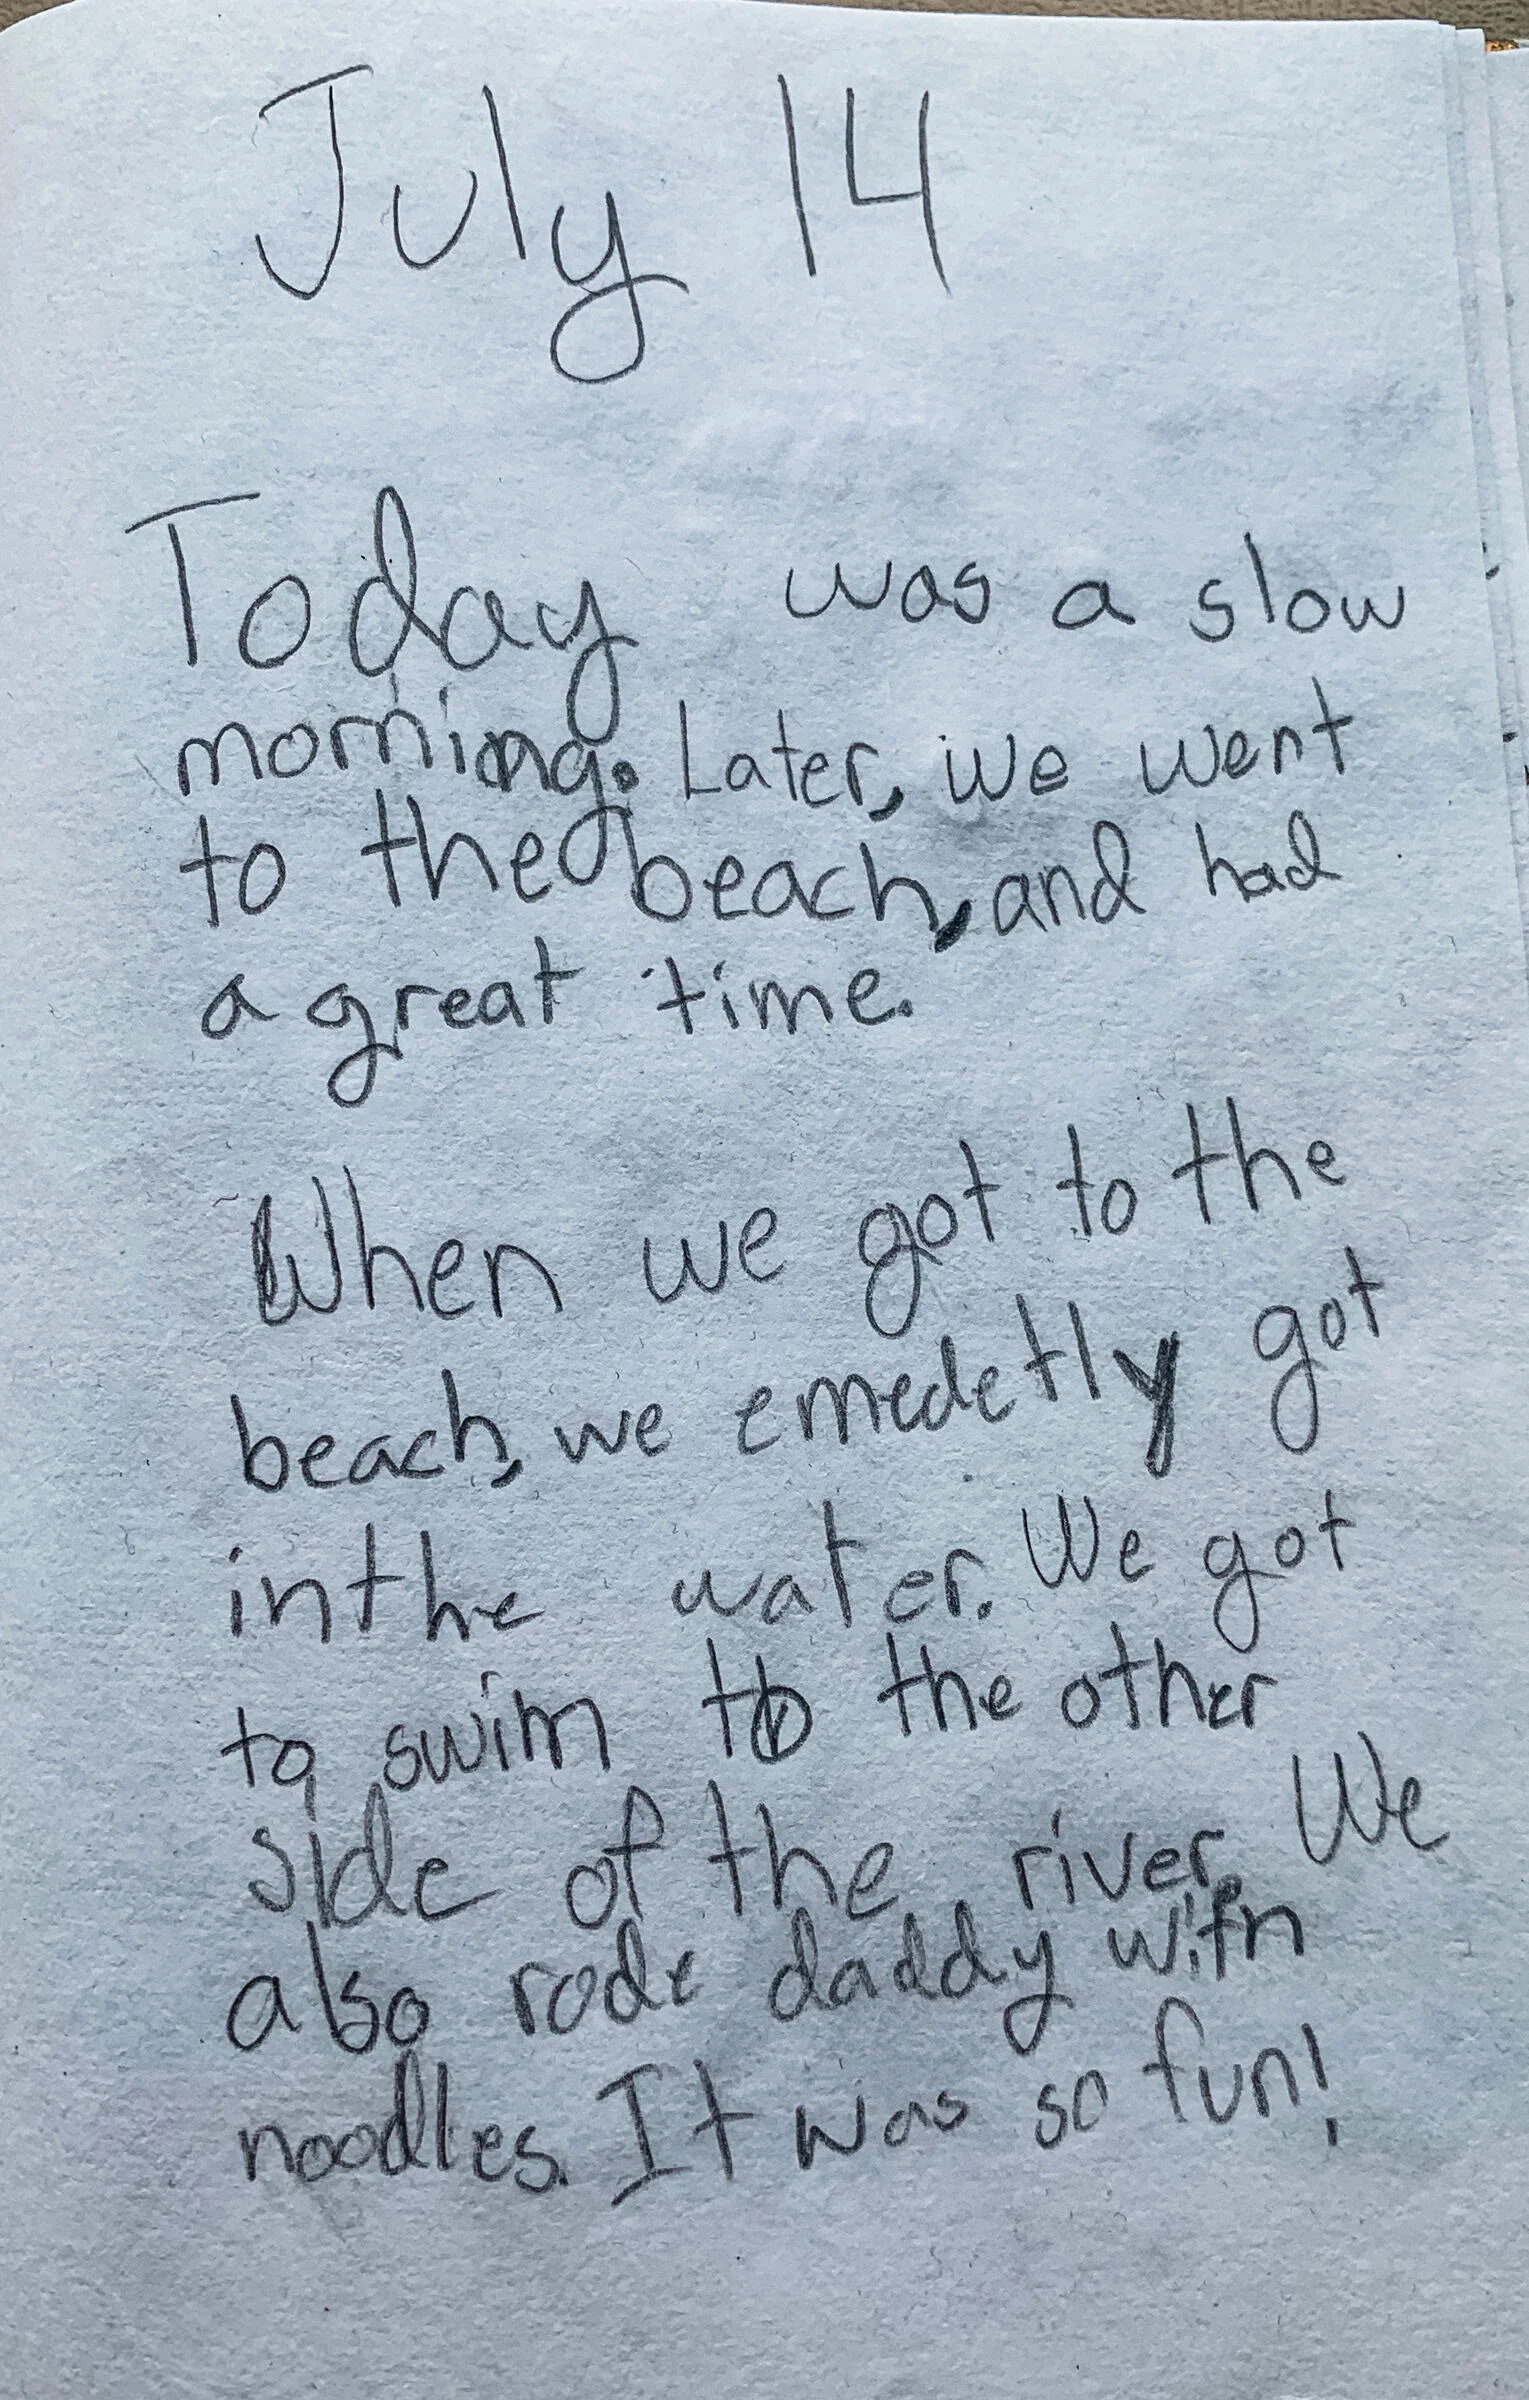 July 14
Today was a slow
morning. Later, we went
to the beach, and had
a great time.
When we got to the
beach, we emedetly got
in the water. We got
to swim to the other
side of the river. We
also rode daddy with
noodles. It was so fun!